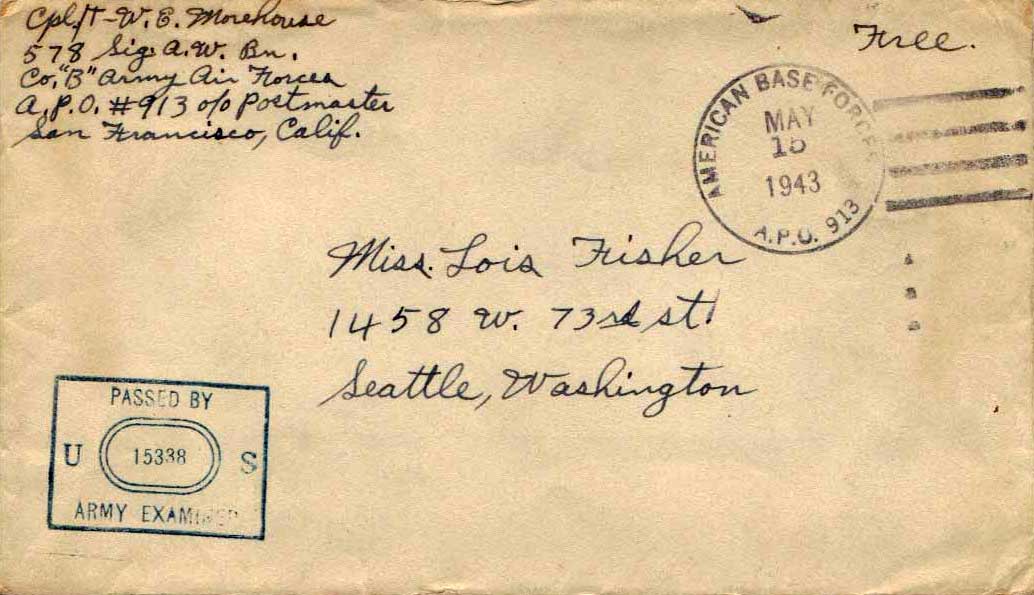 Cpl./T-W. E. Morehouse
578 Sig. A.W. Bn.
Co. "B" Army Air Forces
A.P.O. #913 c/o Postmaster
San Francisco, Calif.
Free.
AMERICAN BASE FORCES
MAY
15
1943
A.P.O. 913
Miss. Lois Fisher
1458 W. 73rd st.
Seattle, Washington
PASSED BY
U 15338 S
ARMY EXAMINER